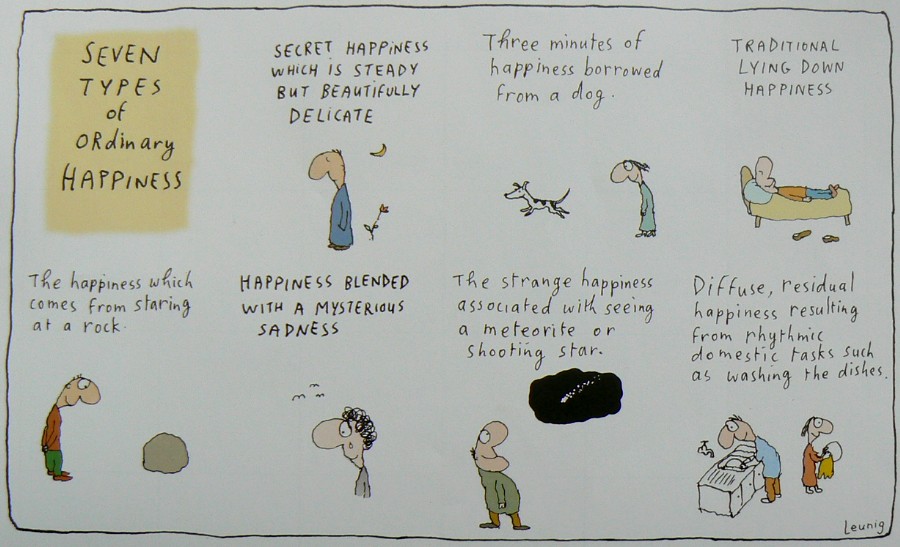 SEVEN
TYPES
of
ORdinary
HAPPINESS
SECRET HAPPINESS
WHICH IS STEADY
BUT BEAUTIFULLY
DELICATE
Three minutes of
happiness borrowed
from a dog.
TRADITIONAL
LYING DOWN
HAPPINESS
The happiness which
comes from staring
at a rock.
HAPPINESS BLENDED
WITH A MYSTERIOUS
SADNESS
The strange happiness
associated with seeing
a meteorite or
shooting star.
Diffuse, residual
happiness resulting
from rhythmic
domestic tasks such
as washing the dishes.
Leunig